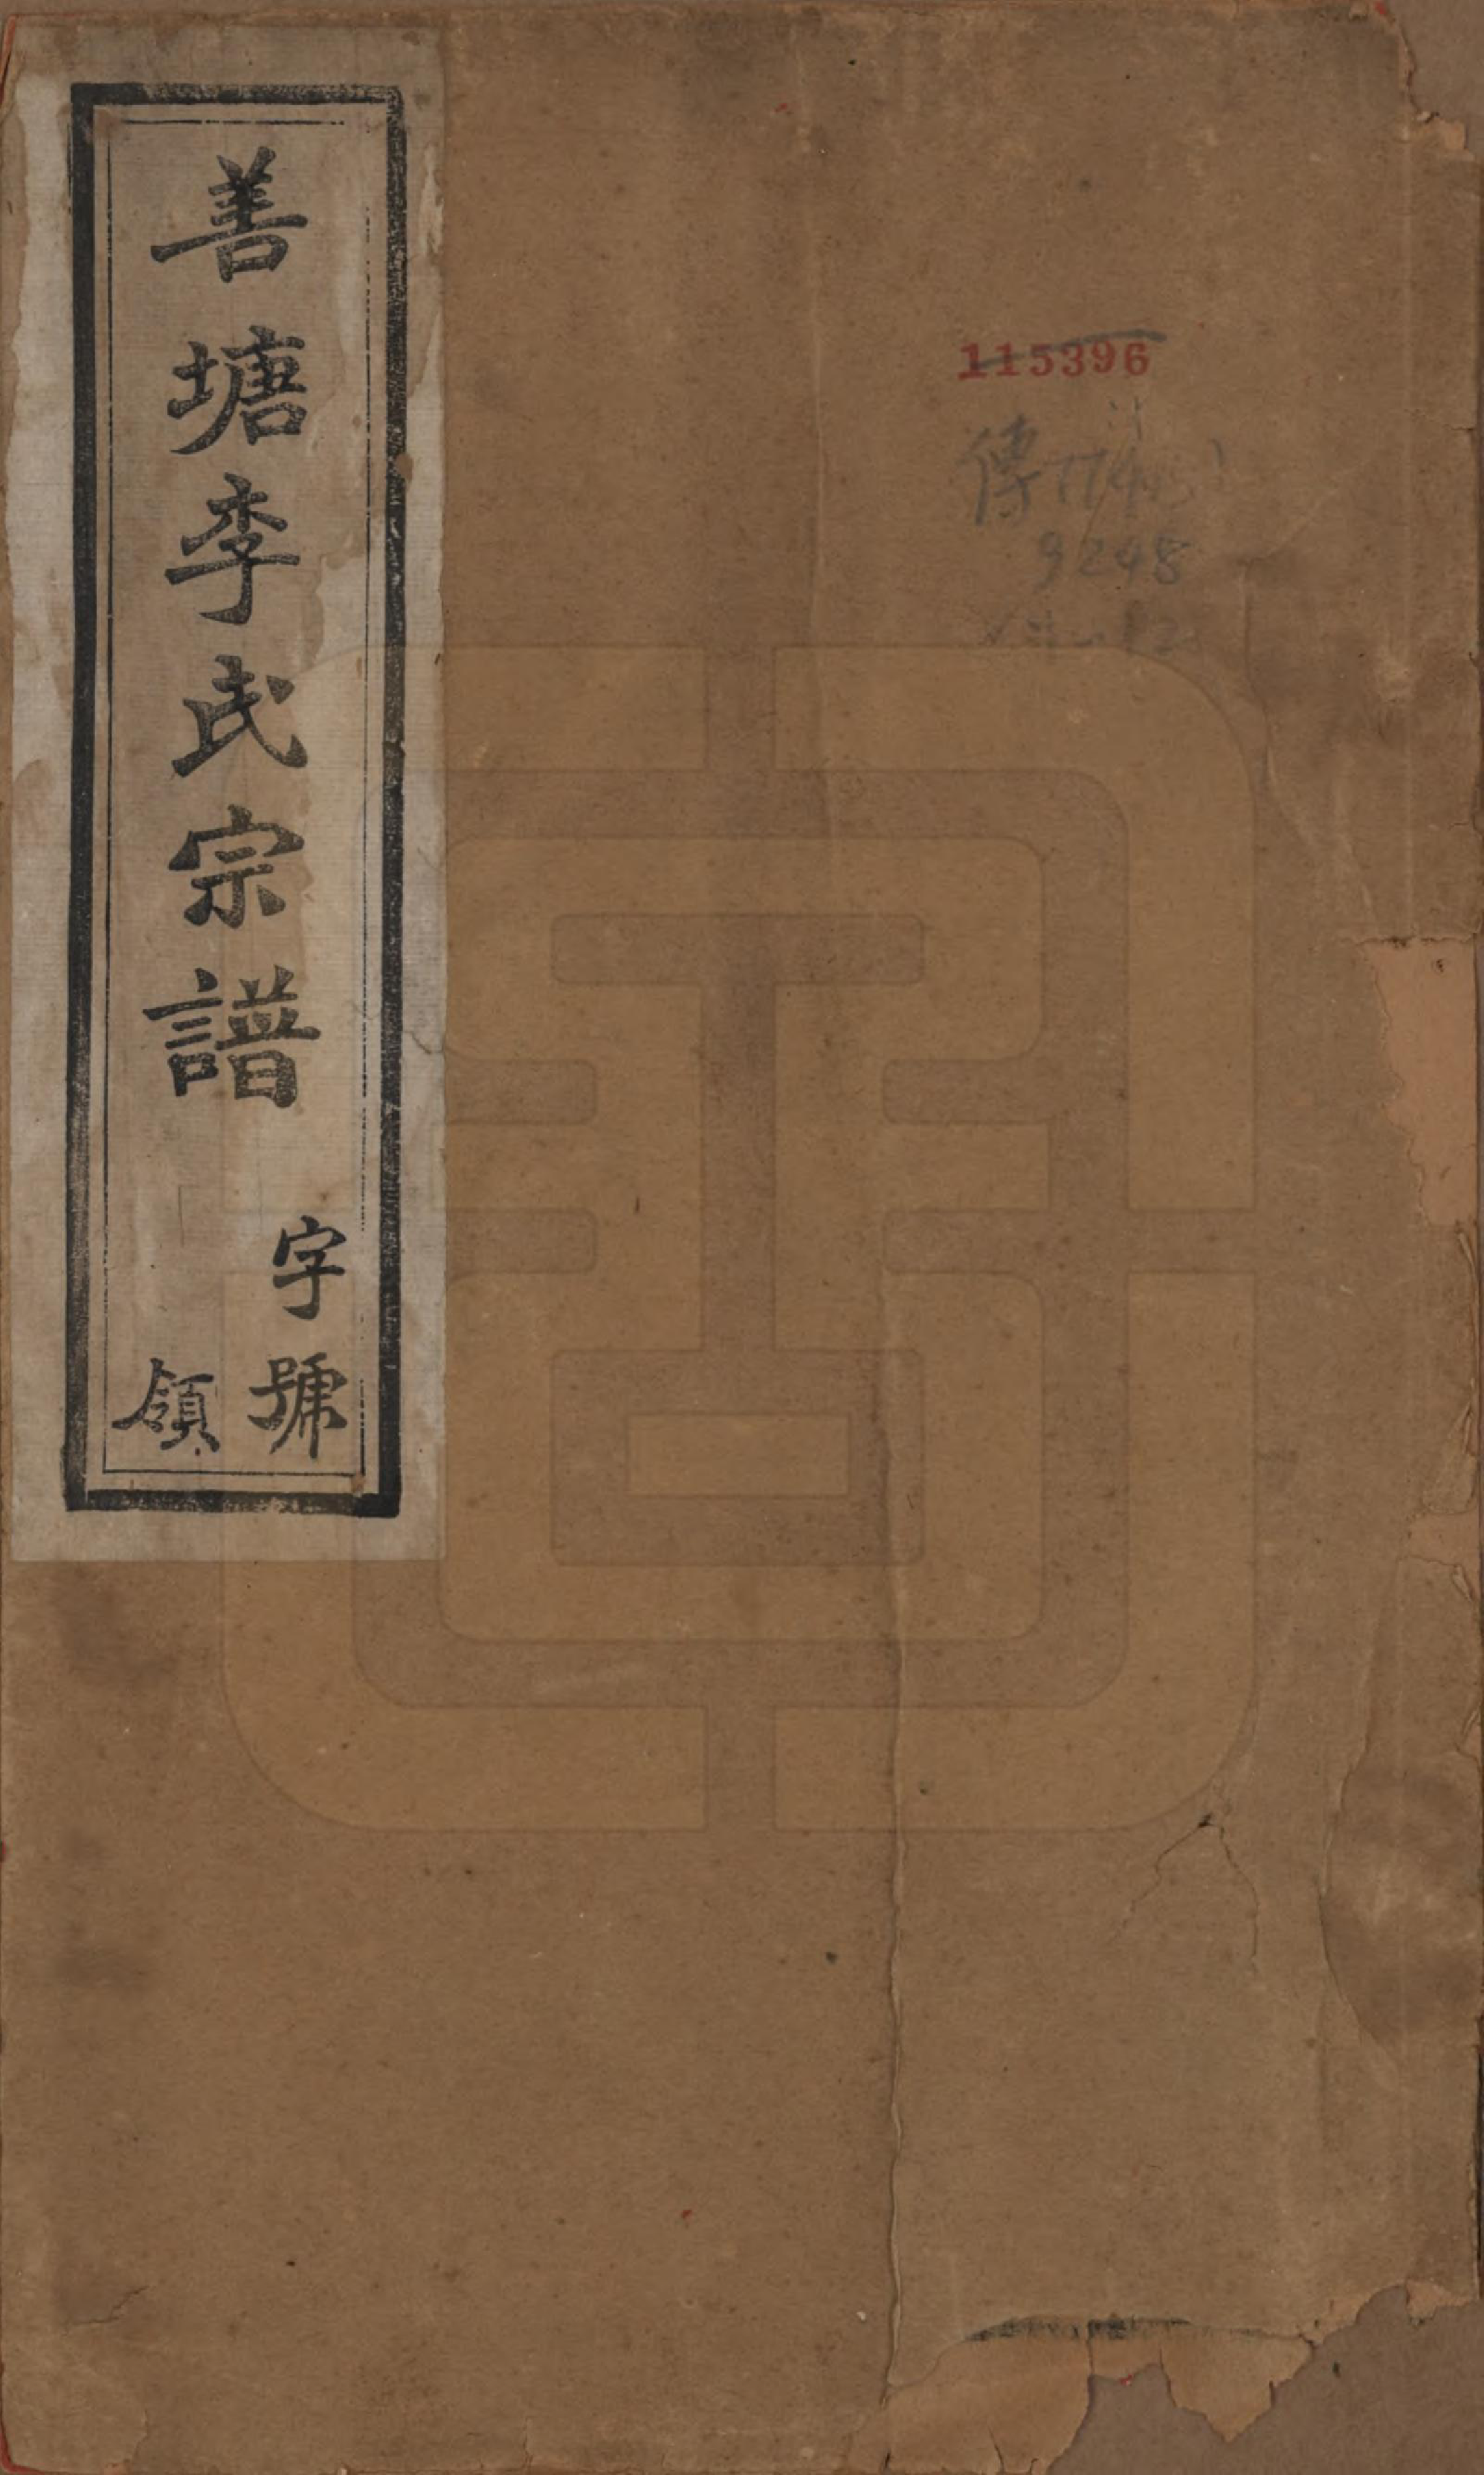 善塘李氏宗譜
字號
領
115396
傳
9248